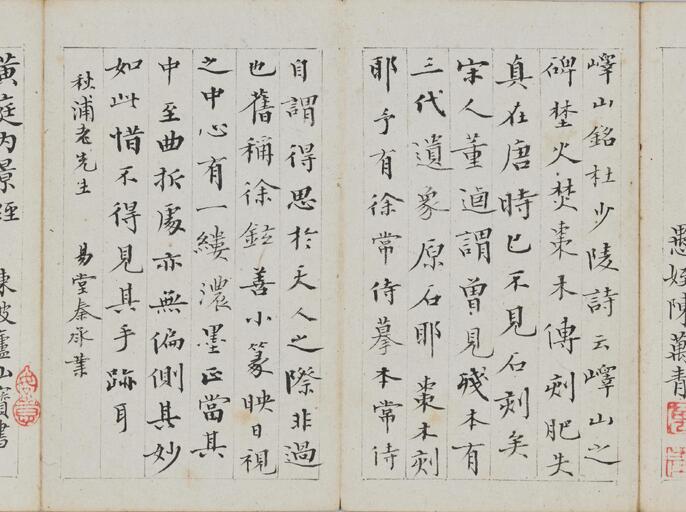 愚姪陳萬青
嶧山銘杜少陵詩云嶧山之
碑埜火焚棗木傳刻肥失
真在唐時已不見石刻矣
宋人董逌謂曾見殘本有
三代遺象原石耶棗木刻
耶予有徐常侍摹本常侍
自謂得思於天人之際非過
也舊稱徐鉉善小篆映日視
之中心有一縷濃墨正當其
中至曲折處亦無偏側其妙
如此惜不得見其手跡耳
秋浦老先生 易堂秦承業
黃庭內景經 東坡廬山寶書